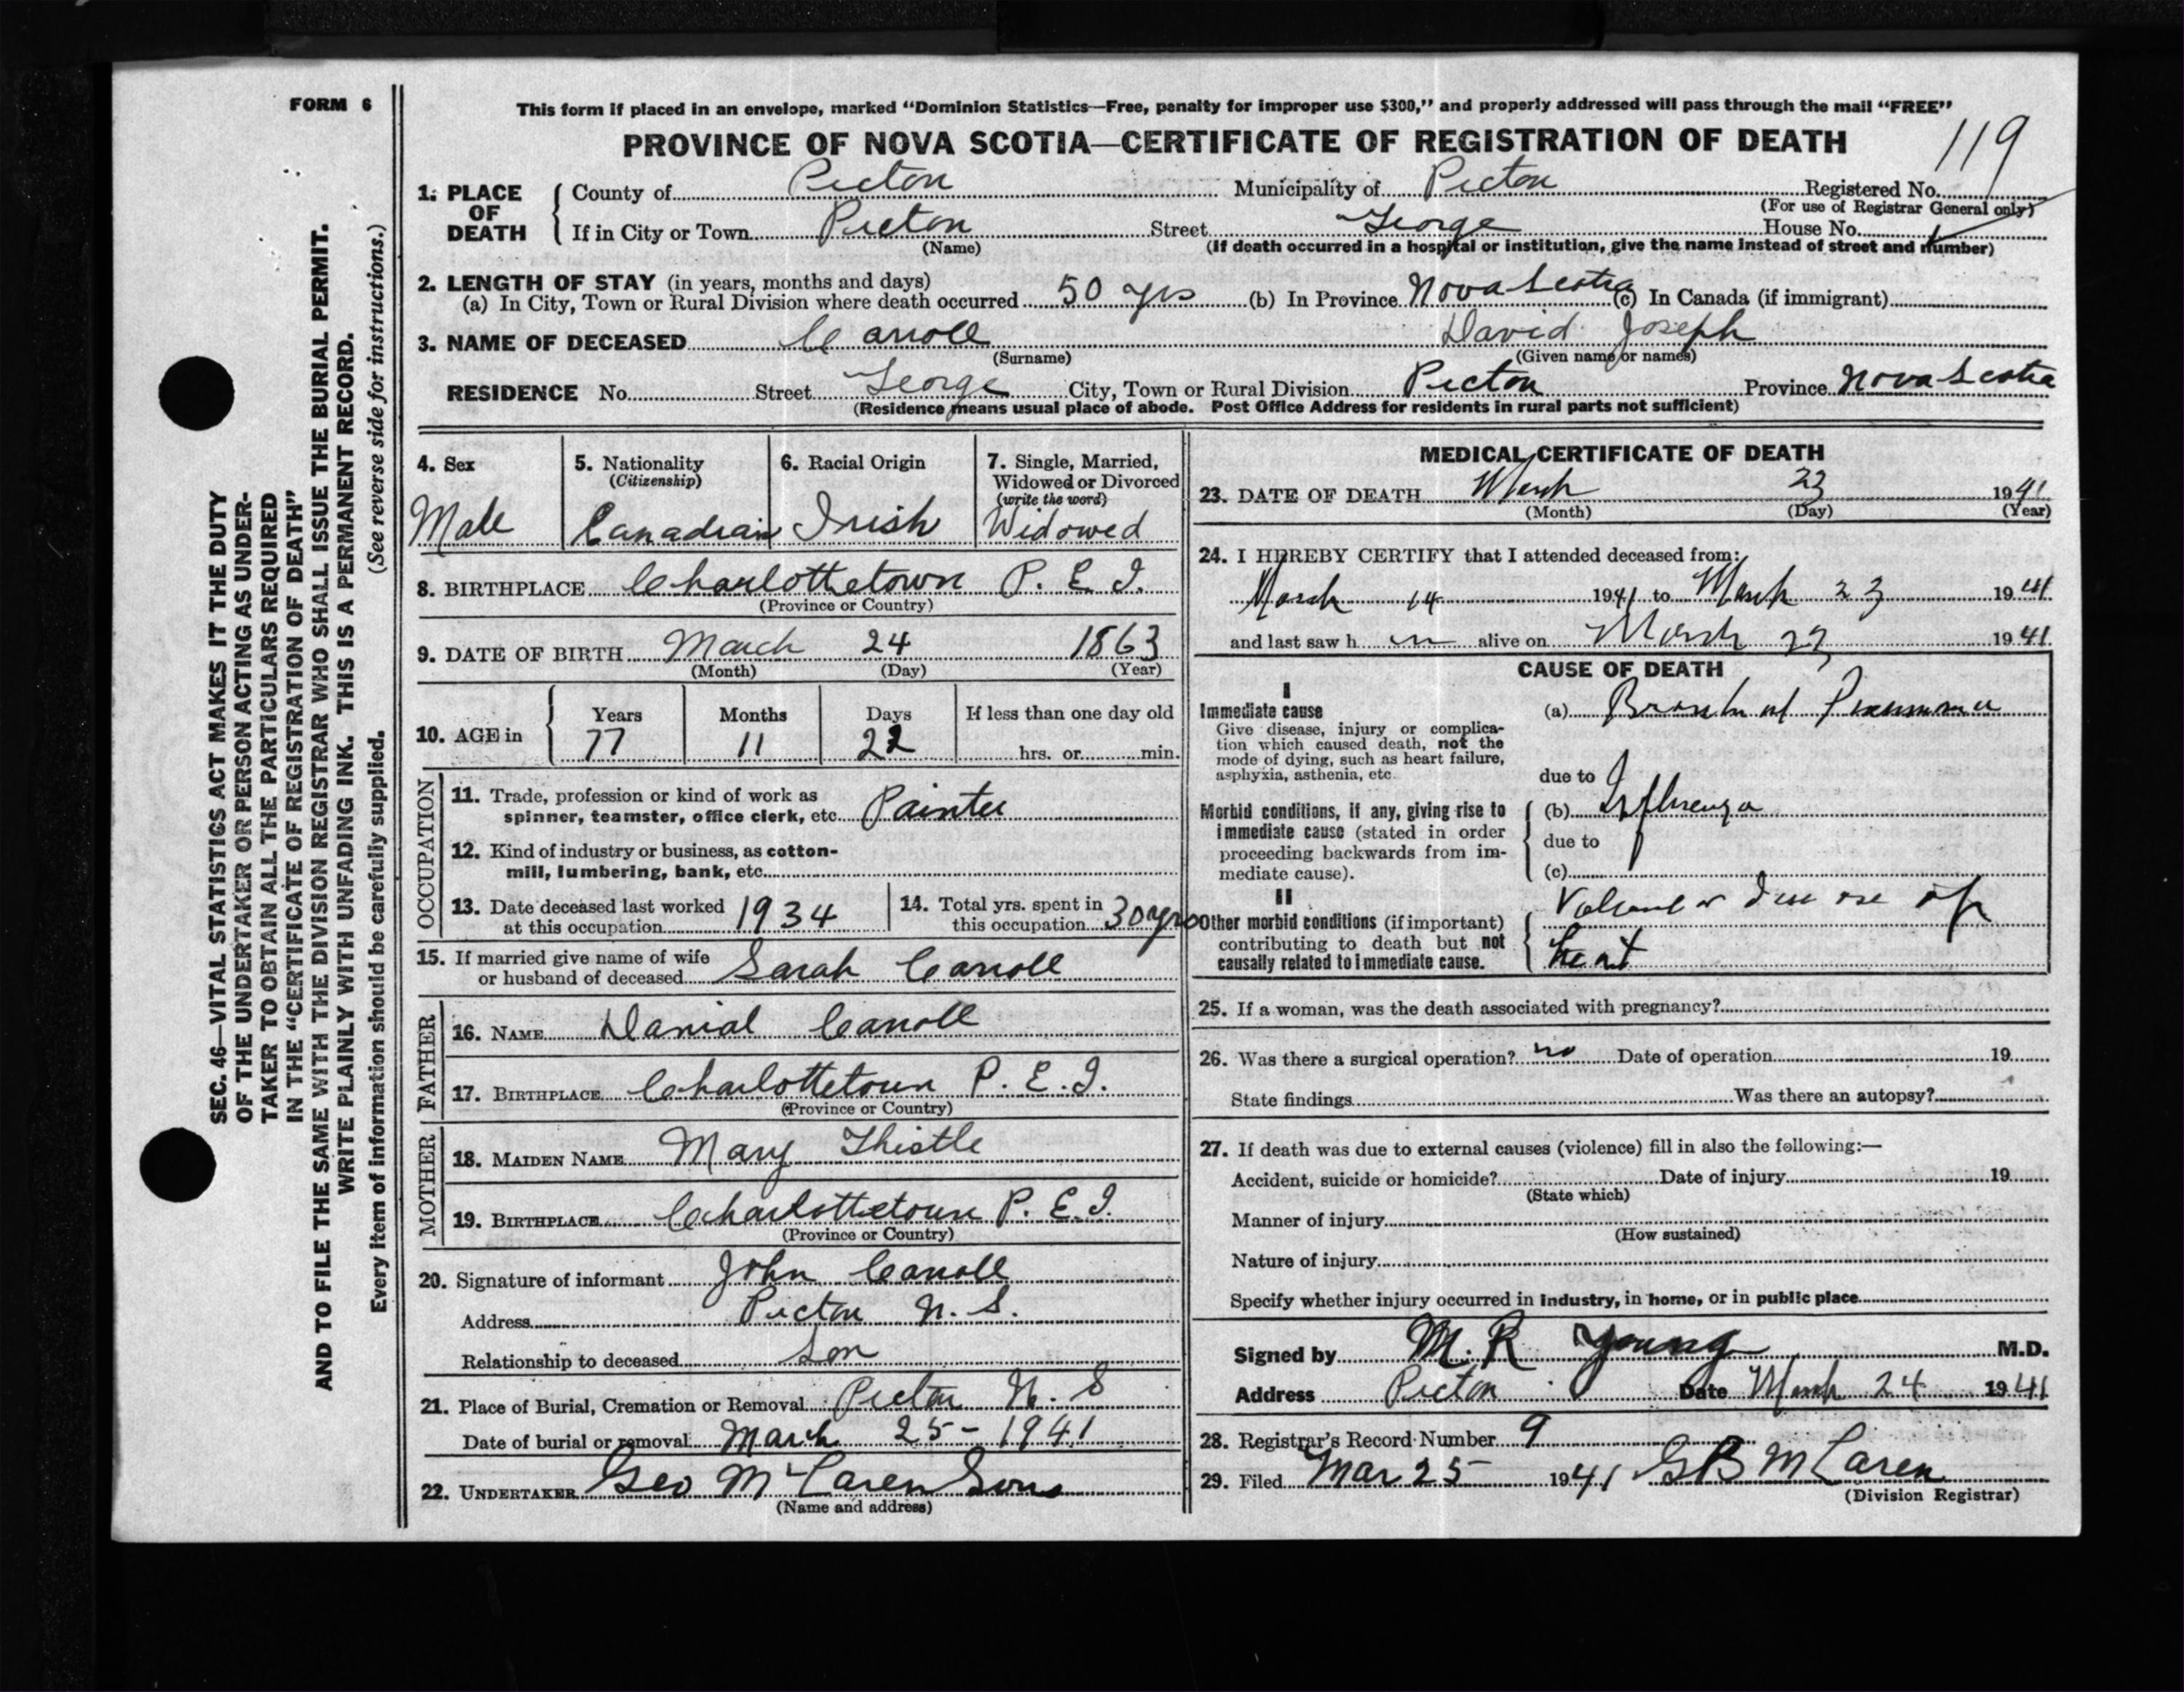 FORM 6
This form if placed in an envelope, marked "Dominion Statistics—Free, penalty for improper use $300," and properly addressed will pass through the mail "FREE"
PROVINCE OF NOVA SCOTIA—CERTIFICATE OF REGISTRATION OF DEATH
119
1. PLACE OF DEATH County of Picton Municipality of Picton Registered No.
(For use of Registrar General only)
If in City or Town Picton Street George House No.
(Name) (If death occurred in a hospital or institution, give the name instead of street and number)
2. LENGTH OF STAY (in years, months and days)
(a) In City, Town or Rural Division where death occurred 50 yrs (b) In Province Nova Scotia (c) In Canada (if immigrant)
3. NAME OF DECEASED Carroll David Joseph
(Surname) (Given name or names)
RESIDENCE No. Street George City, Town or Rural Division Picton Province Nova Scotia
(Residence means usual place of abode. Post Office Address for residents in rural parts not sufficient)
4. Sex
Male
5. Nationality
(Citizenship)
Canadian
6. Racial Origin
Irish
7. Single, Married,
Widowed or Divorced
(write the word)
Widowed
8. BIRTHPLACE Charlottetown P. E. I.
(Province or Country)
9. DATE OF BIRTH March 24 1863
(Month) (Day) (Year)
10. AGE in Years Months Days If less than one day old
77 11 22 hrs. or min.
OCCUPATION
11. Trade, profession or kind of work as
spinner, teamster, office clerk, etc. Painter
12. Kind of industry or business, as cotton-
mill, lumbering, bank, etc.
13. Date deceased last worked
at this occupation 1934
14. Total yrs. spent in
this occupation 30 yrs
15. If married give name of wife
or husband of deceased Sarah Carroll
FATHER
16. NAME Danial Carroll
17. BIRTHPLACE Charlottetown P. E. I.
(Province or Country)
MOTHER
18. MAIDEN NAME Mary Thistle
19. BIRTHPLACE Charlottetown P. E. I.
(Province or Country)
20. Signature of informant John Carroll
Address Picton N. S.
Relationship to deceased Son
21. Place of Burial, Cremation or Removal Picton N. S
Date of burial or removal March 25 - 1941
22. UNDERTAKER Geo McLaren Sons
(Name and address)
MEDICAL CERTIFICATE OF DEATH
23. DATE OF DEATH March 23 1941
(Month) (Day) (Year)
24. I HEREBY CERTIFY that I attended deceased from:
March 14 1941 to March 23 1941
and last saw h im alive on March 23 1941
CAUSE OF DEATH
I
Immediate cause
Give disease, injury or complica-
tion which caused death, not the
mode of dying, such as heart failure,
asphyxia, asthenia, etc.
(a) Bronchial Pneumonia
due to
Morbid conditions, if any, giving rise to
immediate cause (stated in order
proceeding backwards from im-
mediate cause).
(b) Influenza
due to
(c)
II
Other morbid conditions (if important)
contributing to death but not
causally related to immediate cause.
Valvular disease of
heart
25. If a woman, was the death associated with pregnancy?
26. Was there a surgical operation? no Date of operation 19
State findings Was there an autopsy?
27. If death was due to external causes (violence) fill in also the following:—
Accident, suicide or homicide? Date of injury 19
(State which)
Manner of injury
(How sustained)
Nature of injury
Specify whether injury occurred in industry, in home, or in public place
Signed by M. R Young M.D.
Address Picton Date March 24 1941
28. Registrar's Record Number 9
29. Filed Mar 25 1941 G B McLaren
(Division Registrar)
SEC. 46—VITAL STATISTICS ACT MAKES IT THE DUTY
OF THE UNDERTAKER OR PERSON ACTING AS UNDER-
TAKER TO OBTAIN ALL THE PARTICULARS REQUIRED
IN THE "CERTIFICATE OF REGISTRATION OF DEATH"
AND TO FILE THE SAME WITH THE DIVISION REGISTRAR WHO SHALL ISSUE THE BURIAL PERMIT.
WRITE PLAINLY WITH UNFADING INK. THIS IS A PERMANENT RECORD.
Every item of information should be carefully supplied. (See reverse side for instructions.)